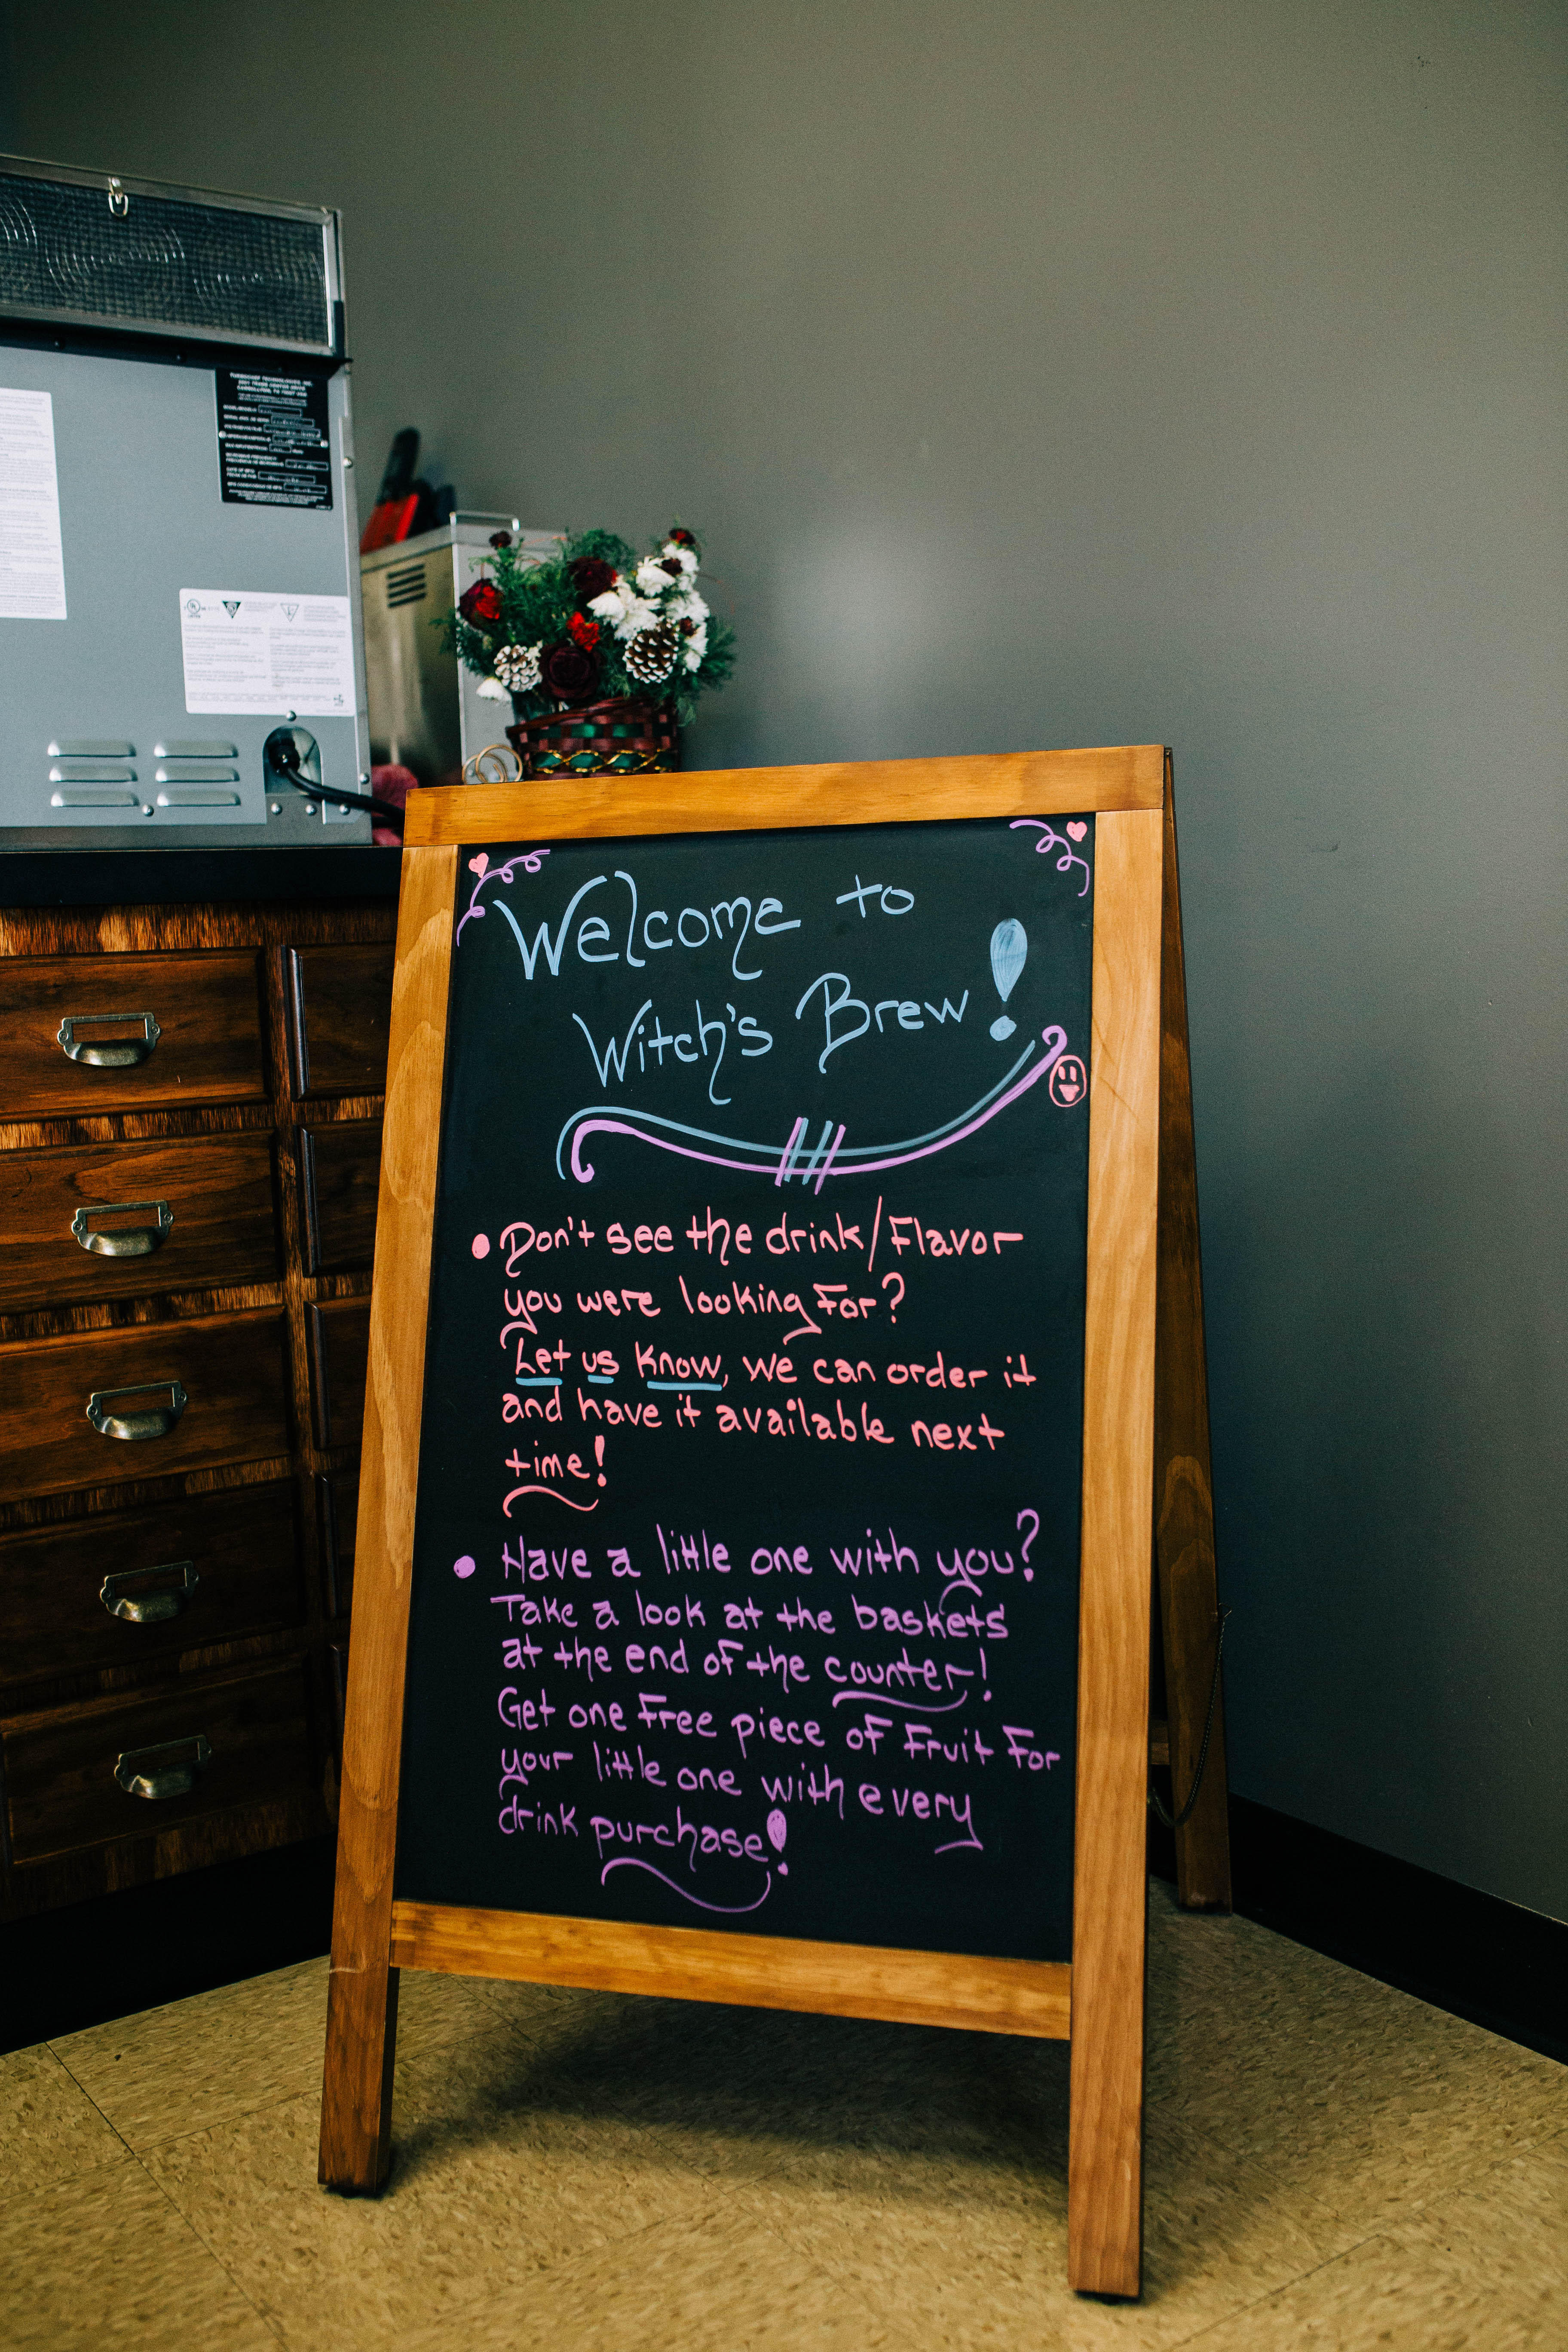 TURBOCHEF TECHNOLOGIES, INC.
Welcome to
Witch's Brew!
Don't see the drink/Flavor
you were looking For?
Let us know, we can order it
and have it available next
time!
Have a little one with you?
Take a look at the baskets
at the end of the counter!
Get one Free piece of Fruit For
your little one with every
drink purchase!